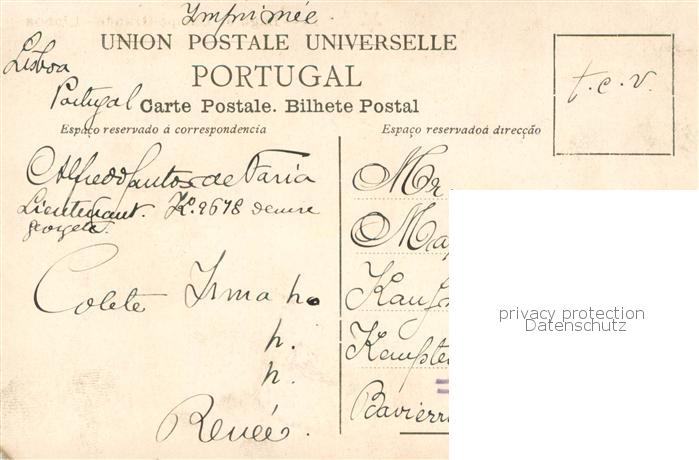 Imprimée.
UNION POSTALE UNIVERSELLE
Lisboa
PORTUGAL
Portugal
Carte Postale. Bilhete Postal
t.c.v.
Espaço reservado á correspondencia
Espaço reservadoá direcção
Alfredo Santos de Faria
Lieutenant. K. 2678
Colete Irma h.
h.
h.
Renée.
Mr
Kauf
Kempte
Bavierr
privacy protection
Datenschutz